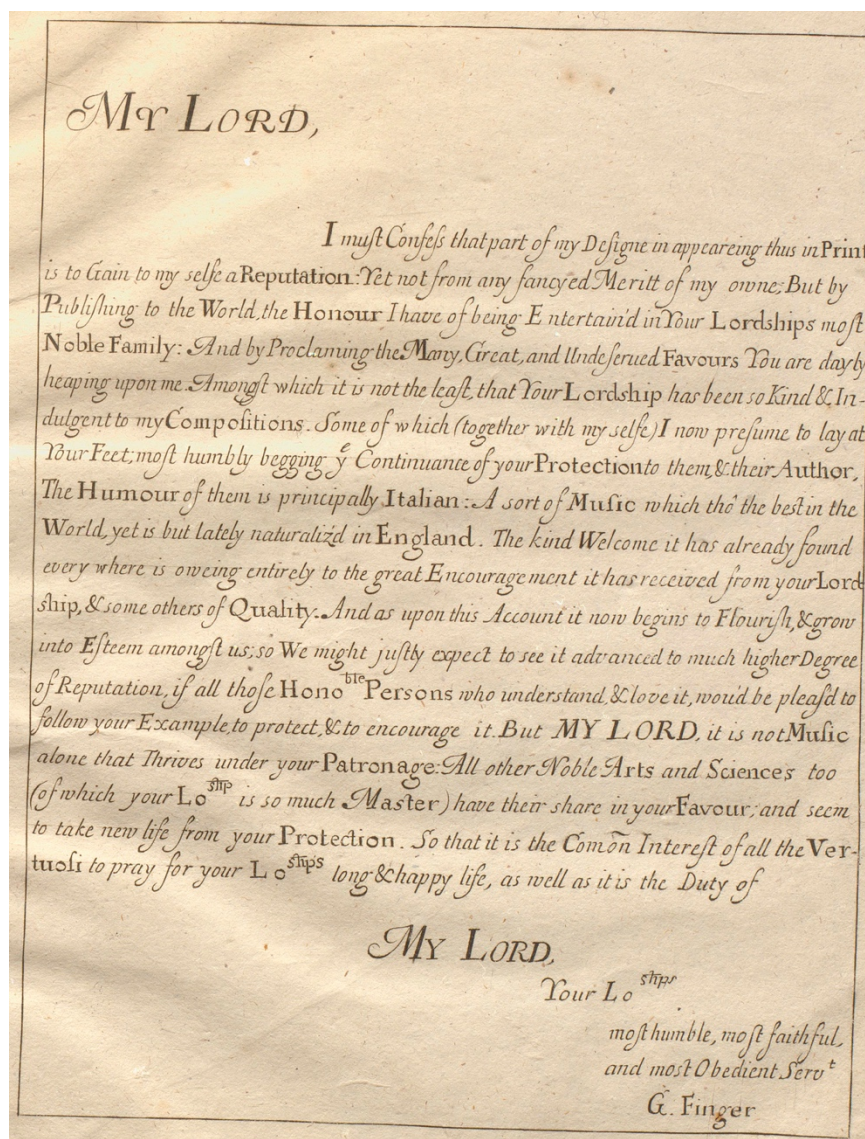 My Lord,
I must Confess that part of my Designe in appeareing thus in Print
is to Gain to my selfe a Reputation: Yet not from any fancyed Meritt of my owne; But by
Publishing to the World, the Honour I have of being Entertain'd in Your Lordships most
Noble Family: And by Proclaming the Many, Great, and Undeserued Favours You are dayly
heaping upon me. Amongst which it is not the least, that Your Lordship has been so Kind & In-
dulgent to my Compositions. Some of which (together with my selfe) I now presume to lay at
Your Feet; most humbly begging yͤ Continuance of your Protection to them, & their Author,
The Humour of them is principally Italian: A sort of Music which tho' the best in the
World, yet is but lately naturaliz'd in England. The kind Welcome it has already found
every where is oweing entirely to the great Encouragement it has received from your Lord
ship, & some others of Quality. And as upon this Account it now begins to Flourish, & grow
into Esteem amongst us; so We might justly expect to see it advanced to much higher Degree
of Reputation, if all those Honoble Persons who understand, & love it, wou'd be pleas'd to
follow your Example, to protect, & to encourage it. But MY LORD, it is not Music
alone that Thrives under your Patronage: All other Noble Arts and Sciences too
(of which your Loship is so much Master) have their share in your Favour; and seem
to take new life from your Protection. So that it is the Comōn Interest of all the Ver-
tuosi to pray for your Loships long & happy life, as well as it is the Duty of
My Lord,
Your Loships
most humble, most faithful,
and most Obedient Servt
G. Finger